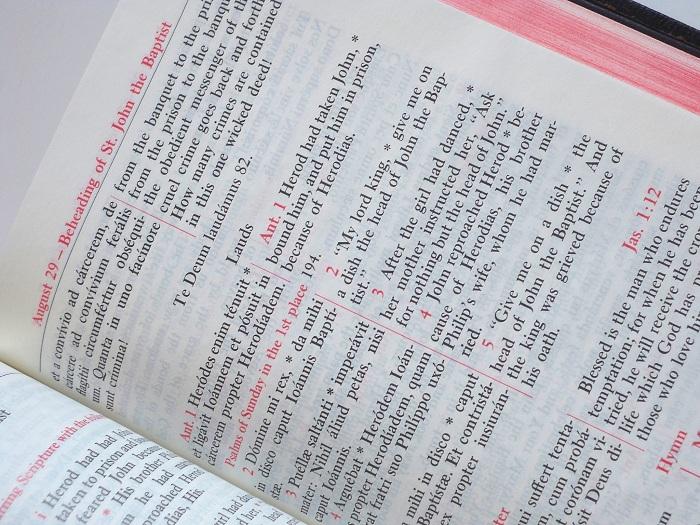 August 29 – Beheading of St. John the Baptist
et a convívio ad cárcerem, de
cárcere ad convívium ferális
flagítii circumfértur obséqui-
um. Quanta in uno facínore
sunt crímina!
from the banquet to the
from the prison to the
the obedient messenger of
cruel crime goes back and forth.
How many crimes are contained
in this one wicked deed!
Te Deum laudámus 82.
Lauds
Ant. 1 Heródes enim ténuit *
et ligávit Joánnem et pósuit in
cárcerem propter Herodíadem.
Psalms of Sunday in the 1st place 194.
2 Dómine mi rex, * da mihi
in disco caput Joánnis Baptí-
stæ.
3 Puéllæ saltánti * imperávit
mater: Nihil áliud petas, nisi
caput Joánnis.
4 Arguébat * Heródem Joán-
propter Herodíadem, quam
fratri suo Philíppo uxó-
mihi in disco * caput
Baptístæ. Et contristá-
rex propter jusjurán-
Ant. 1 Herod had taken John, *
bound him, and put him in prison,
because of Herodias.
2 "My lord king, * give me on
a dish the head of John the Bap-
tist."
3 After the girl had danced, *
her mother instructed her, "Ask
for nothing but the head of John."
4 John reproached Herod * be-
cause of Herodias, his brother
Philip's wife, whom he had mar-
ried.
5 "Give me on a dish * the
head of John the Baptist." And
the king was grieved because of
his oath.
Jas. 1:12
suffert tenta-
cum probá-
corónam vi-
Deus di-
Blessed is the man who endures
temptation; for when he has been
tried, he will receive the
life which God has
those who love
Hymn
Scripture with the
1 Herod had had
taken to prison
feared John
* His brother
he had
Herod
His